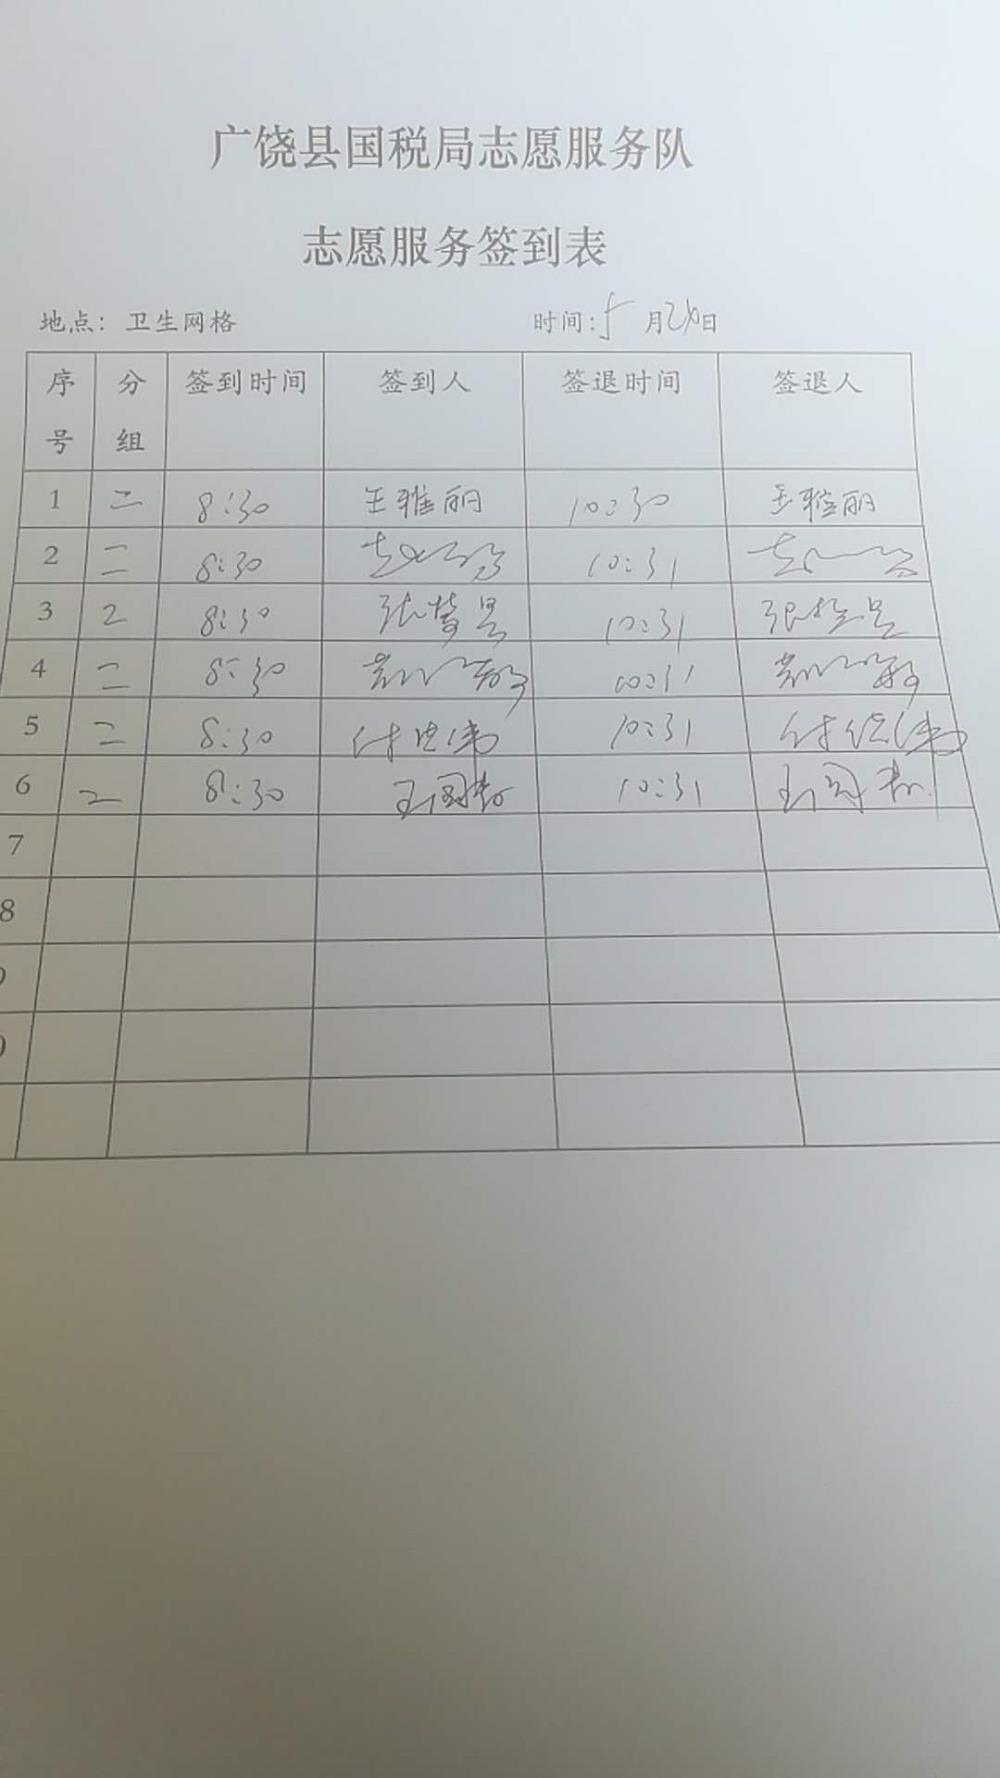 广饶县国税局志愿服务队
志愿服务签到表
地点：卫生网格 时间：5月24日
序号 分组 签到时间 签到人 签退时间 签退人
1 二 8:30 王雅丽 10:30 王雅丽
2 二 8:30 10:31
3 2 8:30 张 10:31 张
4 二 8:30 10:31
5 二 8:30 付 伟 10:31 付 伟
6 二 8:30 王国 10:31 王国
7
8